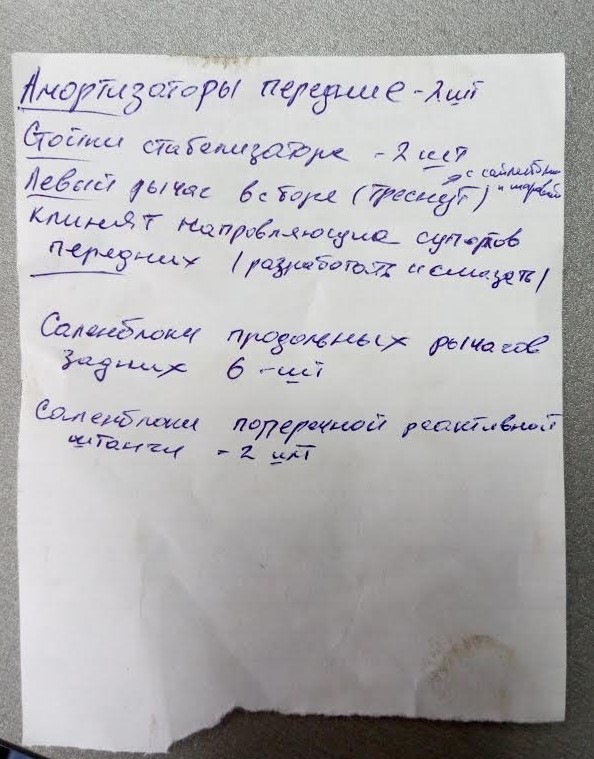 Амортизаторы передние - 2 шт
Стойки стабелизатора - 2 шт
с сайлентбло
Левый рычаг в сборе (треснут) и шаровой
клинят направляющие супортов
передних (разработать и смазать)
Саленблоки продольных рычагов
задних 6 - шт
Саленблоки поперечной реактивной
штанги - 2 шт